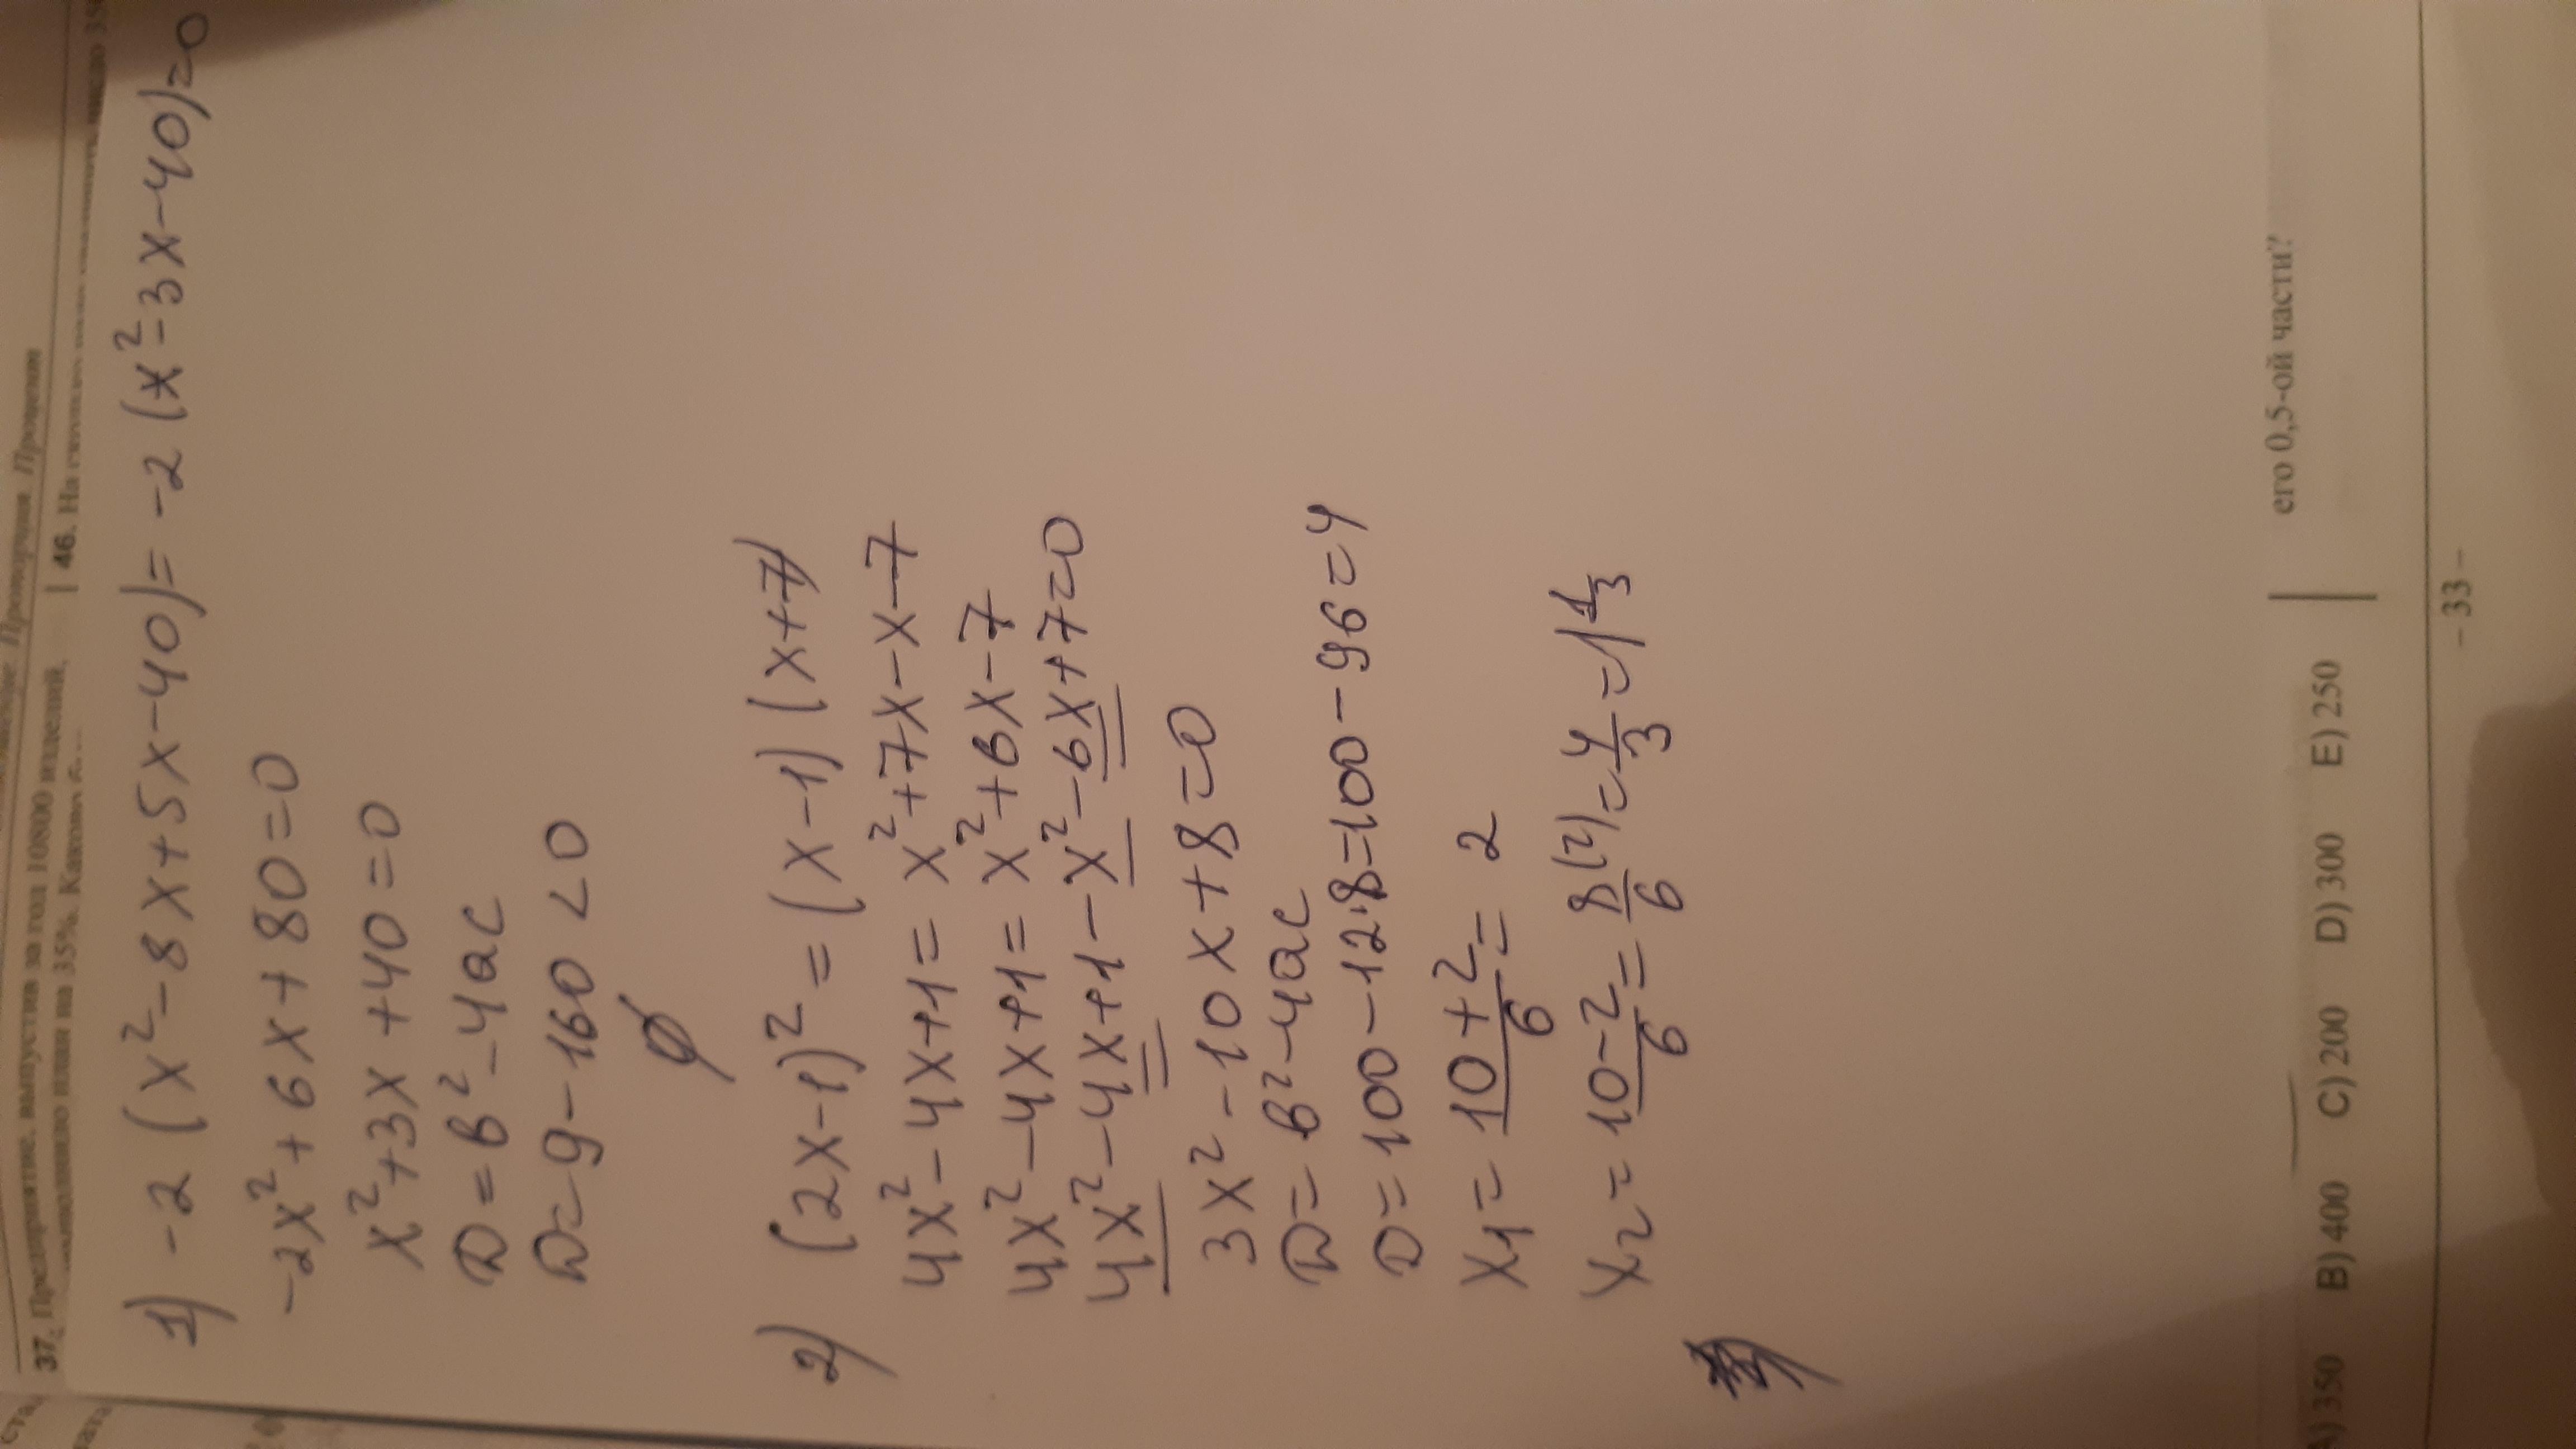 37. Предприятие, выпустив за год 10800 изделий,
46. На
1) -2 (x²-8x+5x-40)= -2 (x²-3x-40)=0
-2x²+6x+80=0
x²+3x+40=0
D=в²-4ac
D=9-160<0
∅
2) (2x-1)²=(x-1)(x+7)
4x²-4x+1=x²+7x-x-7
4x²-4x+1=x²+6x-7
4x²-4x+1-x²-6x+7=0
3x²-10x+8=0
D=в²-4ac
D=100-12·8=100-96=4
x1=10+2/6=2
x2=10-2/6=8(2)/6=4/3=1 1/3
его 0,5-ой части?
A) 350 B) 400 C) 200 D) 300 E) 250
- 33 -